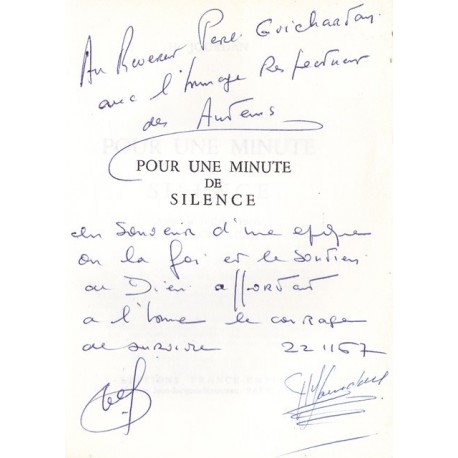 Au Reverend Pere Guichardan
avec l'hommage Respectueux
des Auteurs
POUR UNE MINUTE
DE
SILENCE
en souvenir d'une epoque
ou la foi et le soutien
de Dieu apportait
a l'homme le courage
de survivre 22 11 67